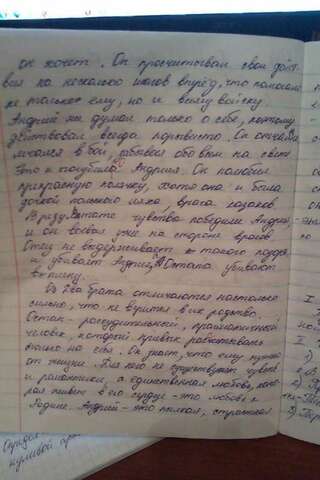 он хочет. Он просчитывал свои дейст-
вия на несколько шагов вперёд, что помогало
не только ему, но и всему войску.
Андрий же думал только о себе, поэтому
действовал всегда порывисто. Он отчаянно
мчался в бой, забывая обо всём на свете.
Это и погубило Андрия. Он полюбил
прекрасную полячку, хотя она и была
дочкой польского ляха, врага казаков.
В результате чувства победили Андрия,
и он воевал уже на стороне врагов.
Отец не выдерживает такого позора
и убивает Андрия, а Остапа убивают
в плену.
Два брата отличаются настолько
сильно, что не верится в их родство.
Остап - рассудительный,
человек, который привык рассчитывать
только на себя. Он знает, что ему нужно
от жизни. Для него не существует чувств
и романтики, а единственная любовь, кото-
рая живёт в его сердце - это любовь к
Родине. Андрий - это пылкая, страстная